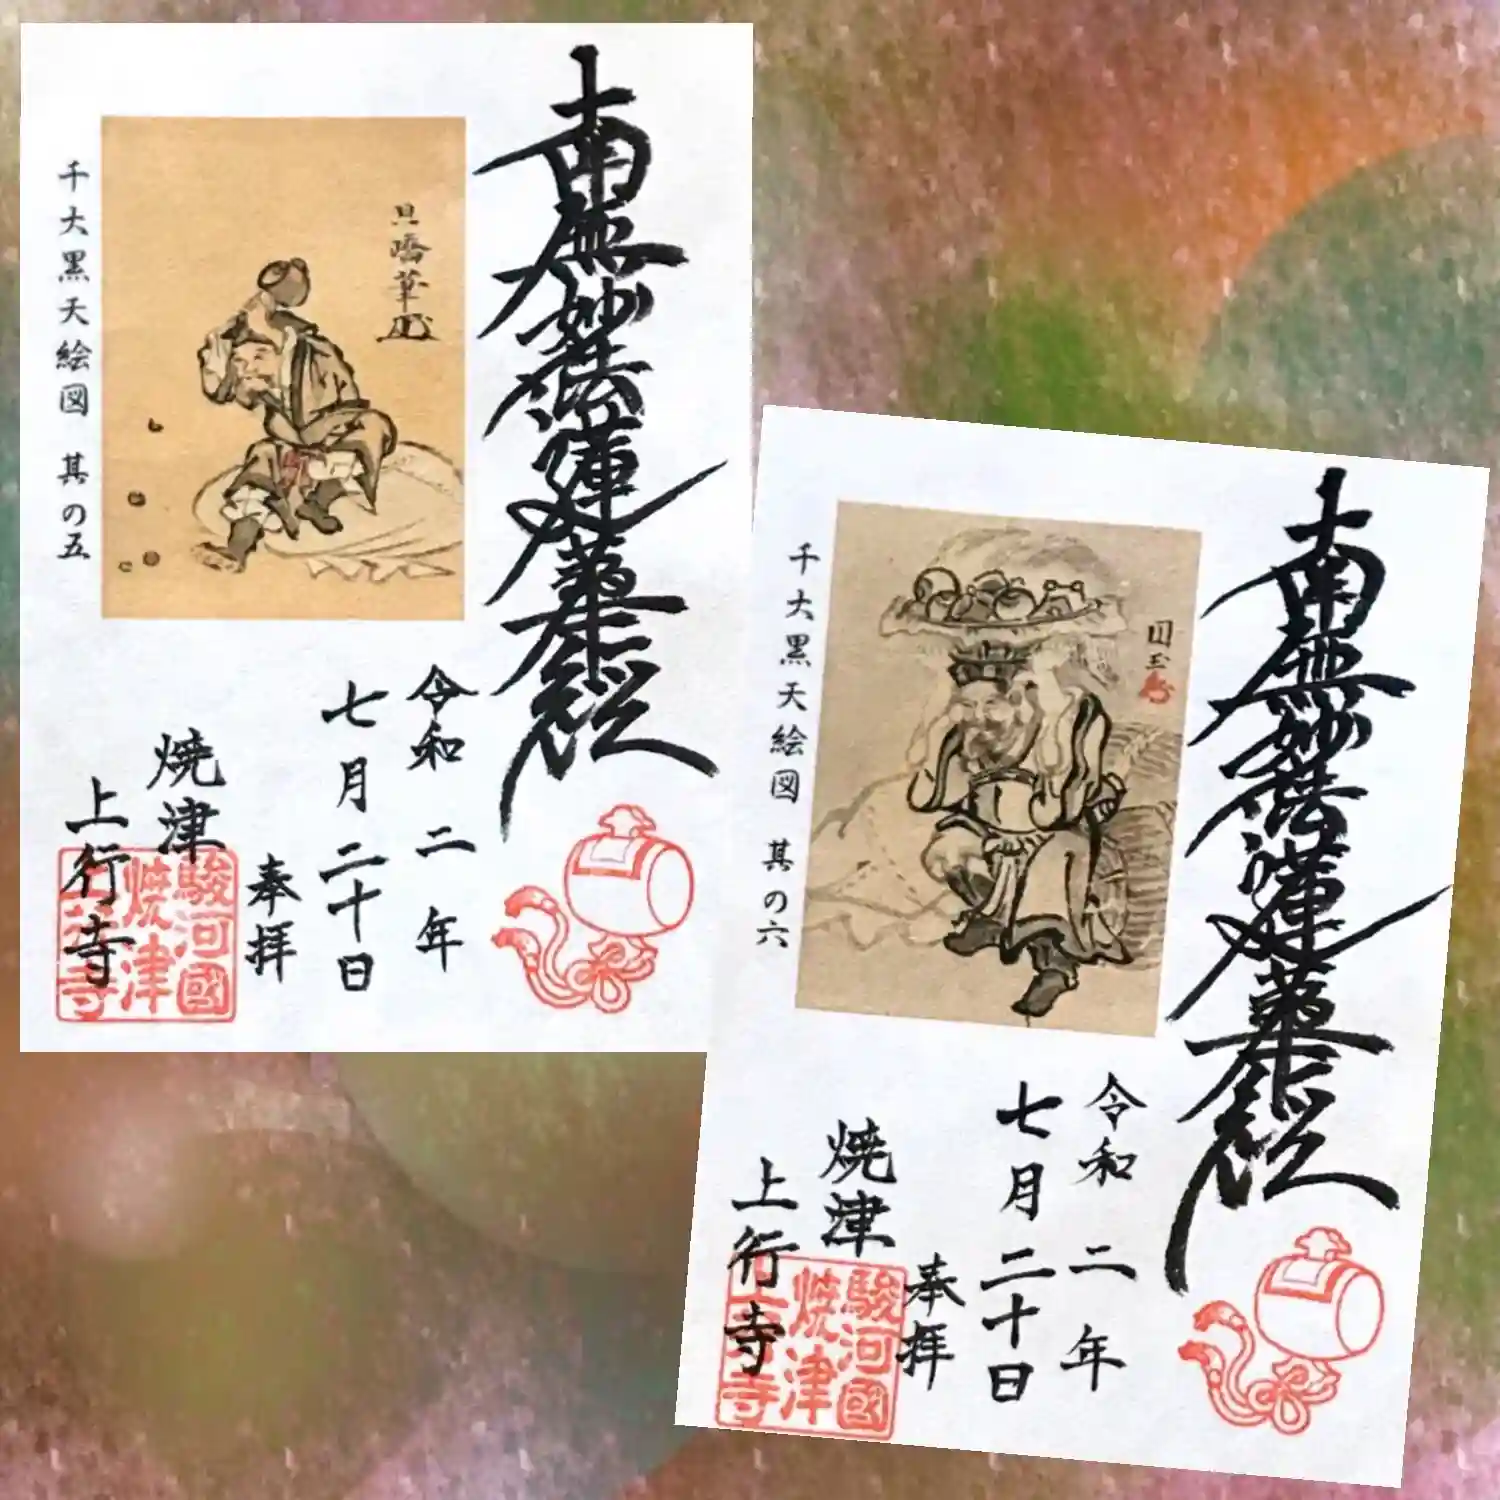 南無妙法蓮華経
千大黒天絵図 其の五
令和二年
七月二十日
奉拝
焼津
上行寺
駿河國
焼津
上行寺
南無妙法蓮華経
千大黒天絵図 其の六
令和二年
七月二十日
奉拝
焼津
上行寺
駿河國
焼津
上行寺